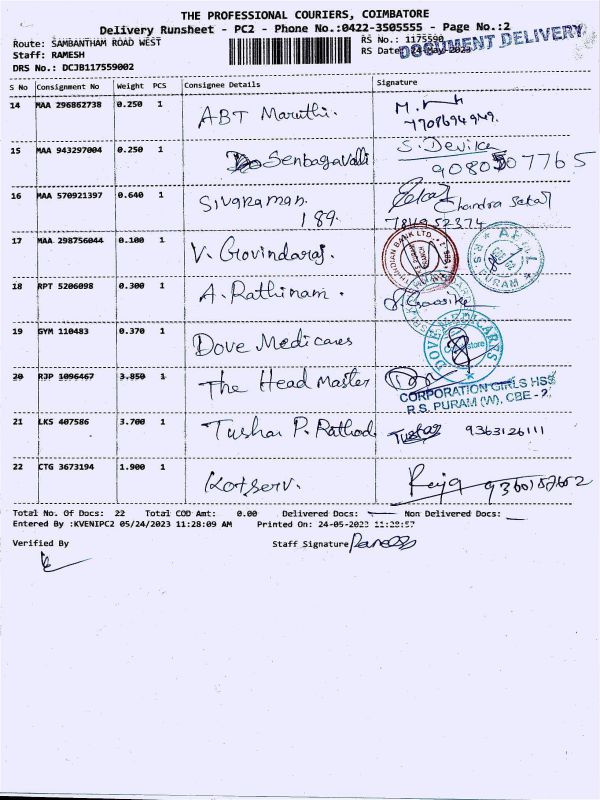 THE PROFESSIONAL COURIERS, COIMBATORE
Delivery Runsheet - PC2 - Phone No.:0422-3505555 - Page No.:2
Route: SAMBANTHAM ROAD WEST
RS No.: 1175590
DOCUMENT DELIVERY
Staff: RAMESH
RS Date: 24-May-2023
DRS No.: DCJB117559002
S No Consignment No Weight PCS Consignee Details Signature
14 MAA 296862738 0.250 1 ABT Maruthi.
7708694949.
15 MAA 943297004 0.250 1 Senbagavalli S. Devika
9080507765
16 MAA 570921397 0.640 1 Sivaraman. Chandra Sekar
189. 784952374
17 MAA 298756044 0.100 1 V. Govindaraj.
INDIAN BANK LTD.
R.S. PURAM
18 RPT 5206098 0.300 1 A. Rathinam.
19 GYM 110483 0.370 1 Dove Medicares
DOVE MEDICARES
20 RJP 1096467 3.850 1 The Head Master
CORPORATION GIRLS HSS
R.S. PURAM (W), CBE - 2.
21 LKS 407586 3.700 1 Tushar P. Rathod Tushar 9363126111
22 CTG 3673194 1.900 1 Kotserv. 9360157652
Total No. Of Docs: 22 Total COD Amt: 0.00 Delivered Docs: Non Delivered Docs:
Entered By :KVENIPC2 05/24/2023 11:28:09 AM Printed On: 24-05-2023 11:28:57
Verified By Staff Signature